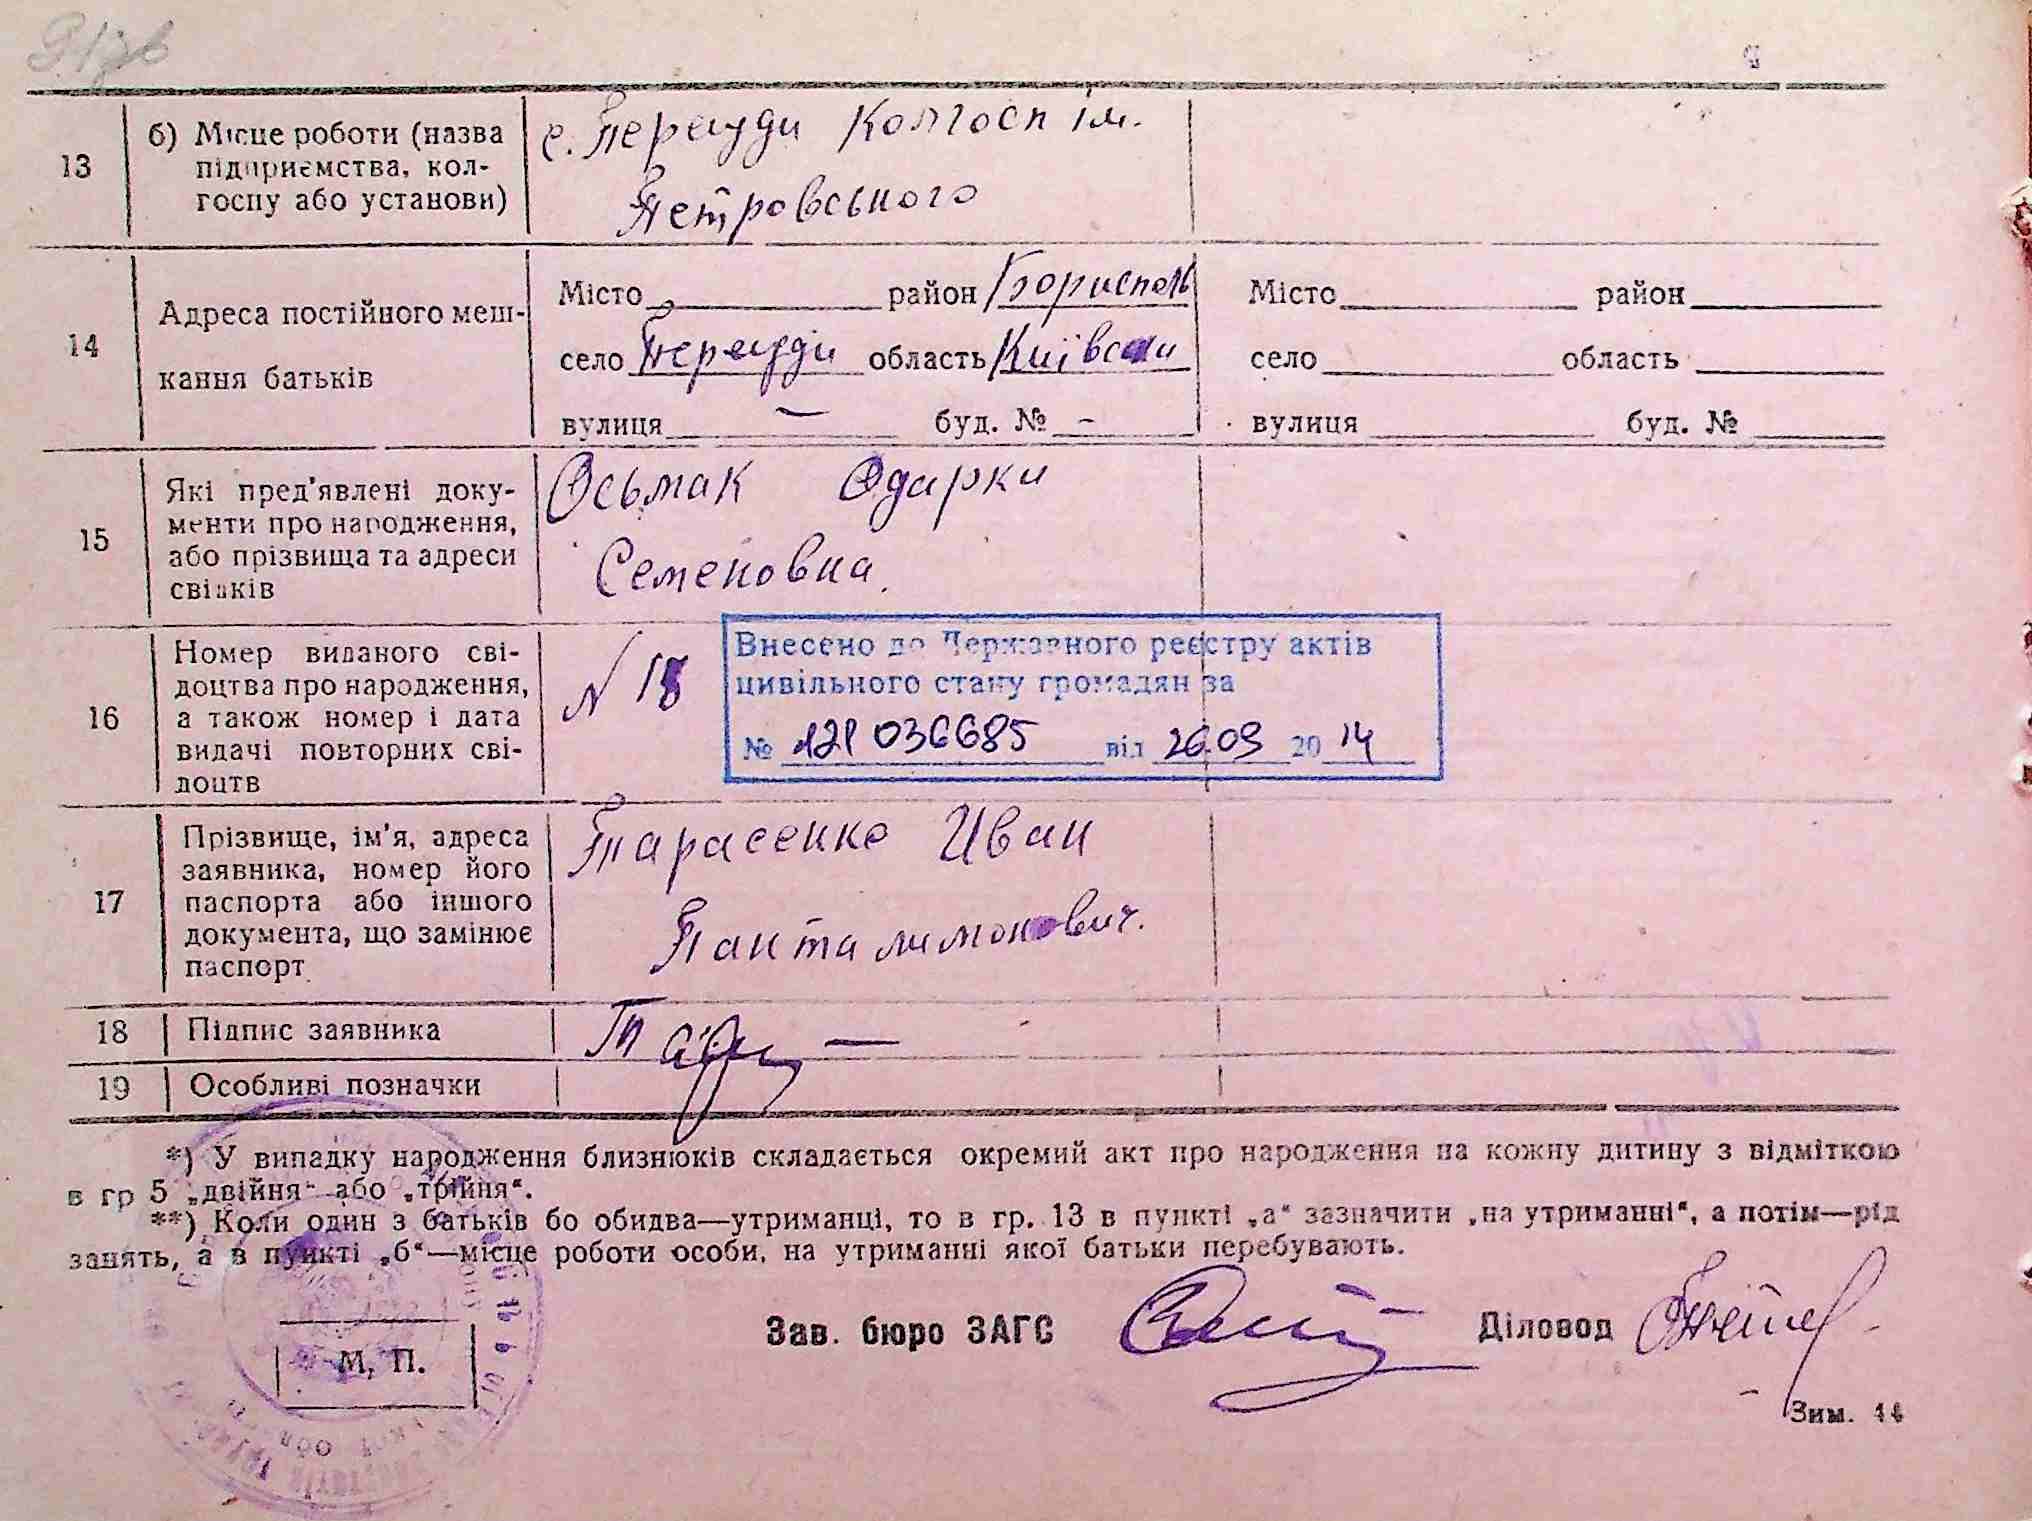 13
б) Місце роботи (назва
підприємства, кол-
госпу або установи)
с. Перегуди Колгосп ім.
Петровського
14
Адреса постійного меш-
кання батьків
Місто район Бориспол
село Перегуди область Київськи
вулиця — буд. № -
Місто район
село область
вулиця буд. №
15
Які пред'явлені доку-
менти про народження,
або прізвища та адреси
свідків
Осьмак Одарки
Семеновна.
16
Номер виданого сві-
доцтва про народження,
а також номер і дата
видачі повторних сві-
доцтв
N 18
Внесено до Державного реєстру актів
цивільного стану громадян за
№ 121 036685 від 26.09 2014
17
Прізвище, ім'я, адреса
заявника, номер його
паспорта або іншого
документа, що замінює
паспорт
Тарасенко Иван
Панталимонович.
18
Підпис заявника
19
Особливі позначки
*) У випадку народження близнюків складається окремий акт про народження на кожну дитину з відміткою
в гр 5 „двійня“ або „трійня“.
**) Коли один з батьків бо обидва—утриманці, то в гр. 13 в пункті „а“ зазначити „на утриманні“, а потім—рід
занять, а в пункті „б“—місце роботи особи, на утриманні якої батьки перебувають.
Зав. бюро ЗАГС
Діловод
М. П.
Зим. 44